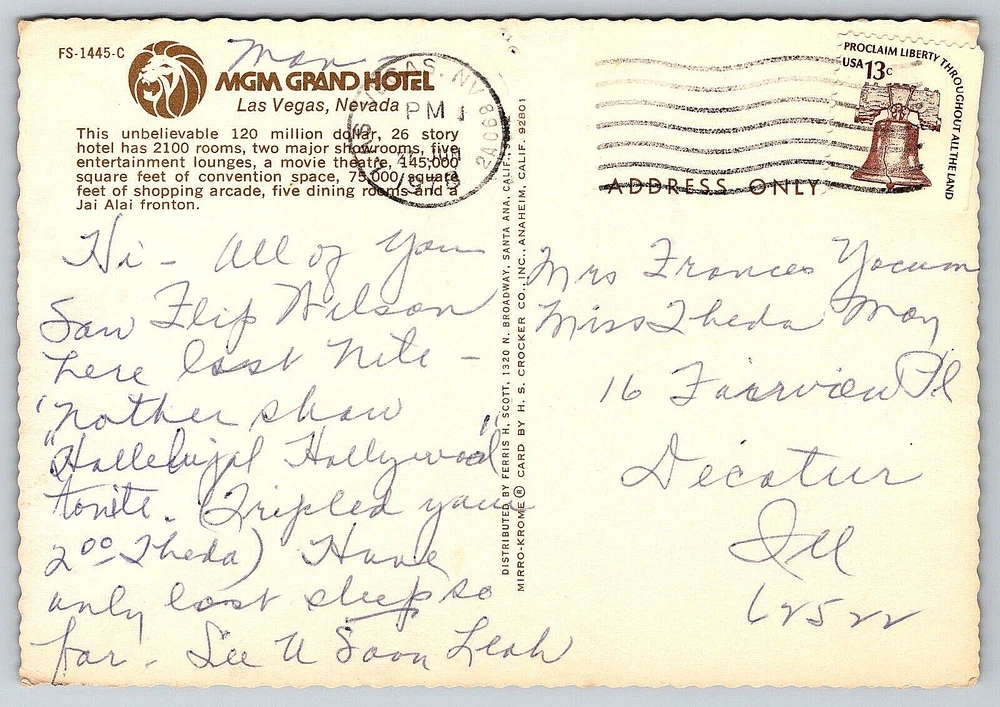 FS-1445-C
Mon
MGM GRAND HOTEL
Las Vegas, Nevada
This unbelievable 120 million dollar, 26 story
hotel has 2100 rooms, two major showrooms, five
entertainment lounges, a movie theatre, 145,000
square feet of convention space, 75,000 square
feet of shopping arcade, five dining rooms and a
Jai Alai fronton.
Hi - All of You
Saw Flip Wilson
here last nite -
'nother show
"Hallelujal Hollywood"
tonite. (Tripled your
2⁰⁰ Theda) Have
only lost sleep so
far - See U Soon Leah
DISTRIBUTED BY FERRIS H. SCOTT, 1320 N. BROADWAY, SANTA ANA, CALIF.
MIRRO-KROME® CARD BY H. S. CROCKER CO., INC., ANAHEIM, CALIF. 92801
VEGAS, NV
PM
USA 13c
PROCLAIM LIBERTY THROUGHOUT ALL THE LAND
ADDRESS ONLY
Mrs Frances Yocum
Miss Theda May
16 Fairview Pl
Decatur
Ill
62522